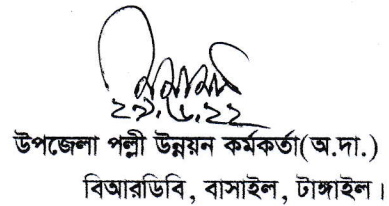 ২৯.৬.২২
উপজেলা পল্লী উন্নয়ন কর্মকর্তা(অ.দা.)
বিআরডিবি, বাসাইল, টাঙ্গাইল।